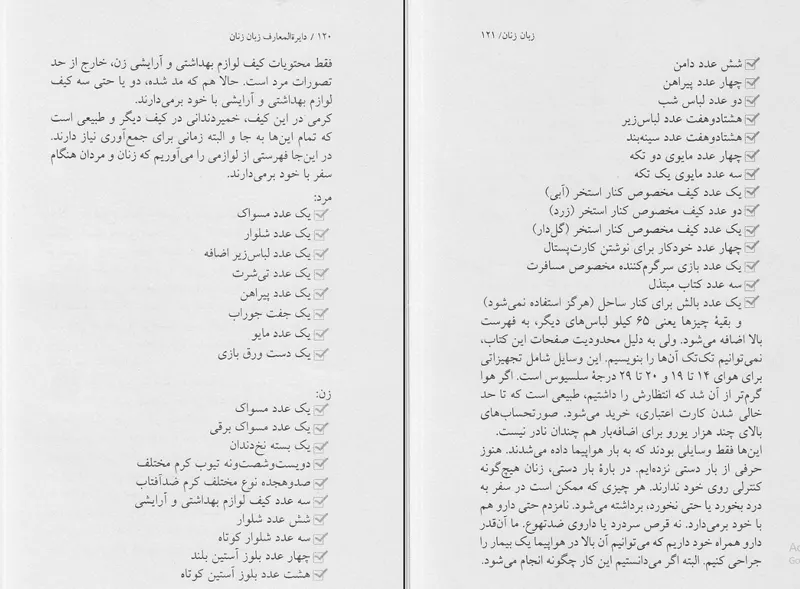 ۱۲۰ / دایرةالمعارف زبان زنان
فقط محتویات کیف لوازم بهداشتی و آرایشی زن، خارج از حد
تصورات مرد است. حالا هم که مد شده، دو یا حتی سه کیف
لوازم بهداشتی و آرایشی با خود برمی‌دارند.
کرمی در این کیف، خمیردندانی در کیف دیگر و طبیعی است
که تمام این‌ها به جا و البته زمانی برای جمع‌آوری نیاز دارند.
در این‌جا فهرستی از لوازمی را می‌آوریم که زنان و مردان هنگام
سفر با خود برمی‌دارند.
مرد:
یک عدد مسواک
یک عدد شلوار
یک عدد لباس‌زیر اضافه
یک عدد تی‌شرت
یک عدد پیراهن
یک جفت جوراب
یک عدد مایو
یک دست ورق بازی
زن:
یک عدد مسواک
یک عدد مسواک برقی
یک بسته نخ‌دندان
دویست‌وشصت‌ونه تیوب کرم مختلف
صدوهجده نوع مختلف کرم ضدآفتاب
سه عدد کیف لوازم بهداشتی و آرایشی
شش عدد شلوار
سه عدد شلوار کوتاه
چهار عدد بلوز آستین بلند
هشت عدد بلوز آستین کوتاه
زبان زنان/ ۱۲۱
شش عدد دامن
چهار عدد پیراهن
دو عدد لباس شب
هشتادوهفت عدد لباس‌زیر
هشتادوهفت عدد سینه‌بند
چهار عدد مایوی دو تکه
سه عدد مایوی یک تکه
یک عدد کیف مخصوص کنار استخر (آبی)
دو عدد کیف مخصوص کنار استخر (زرد)
یک عدد کیف مخصوص کنار استخر (گل‌دار)
چهار عدد خودکار برای نوشتن کارت‌پستال
یک عدد بازی سرگرم‌کننده مخصوص مسافرت
سه عدد کتاب مبتذل
یک عدد بالش برای کنار ساحل (هرگز استفاده نمی‌شود)
و بقیهٔ چیزها یعنی ۶۵ کیلو لباس‌های دیگر، به فهرست
بالا اضافه می‌شود. ولی به دلیل محدودیت صفحات این کتاب،
نمی‌توانیم تک‌تک آن‌ها را بنویسیم. این وسایل شامل تجهیزاتی
برای هوای ۱۴ تا ۱۹ و ۲۰ تا ۲۹ درجهٔ سلسیوس است. اگر هوا
گرم‌تر از آن شد که انتظارش را داشتیم، طبیعی است که تا حد
خالی شدن کارت اعتباری، خرید می‌شود. صورتحساب‌های
بالای چند هزار یورو برای اضافه‌بار هم چندان نادر نیست.
این‌ها فقط وسایلی بودند که به بار هواپیما داده می‌شدند. هنوز
حرفی از بار دستی نزده‌ایم. در بارهٔ بار دستی، زنان هیچ‌گونه
کنترلی روی خود ندارند. هر چیزی که ممکن است در سفر به
درد بخورد یا حتی نخورد، برداشته می‌شود. نامزدم حتی دارو هم
با خود برمی‌دارد. نه قرص سردرد یا داروی ضدتهوع. ما آن‌قدر
دارو همراه خود داریم که می‌توانیم آن بالا در هواپیما یک بیمار را
جراحی کنیم. البته اگر می‌دانستیم این کار چگونه انجام می‌شود.